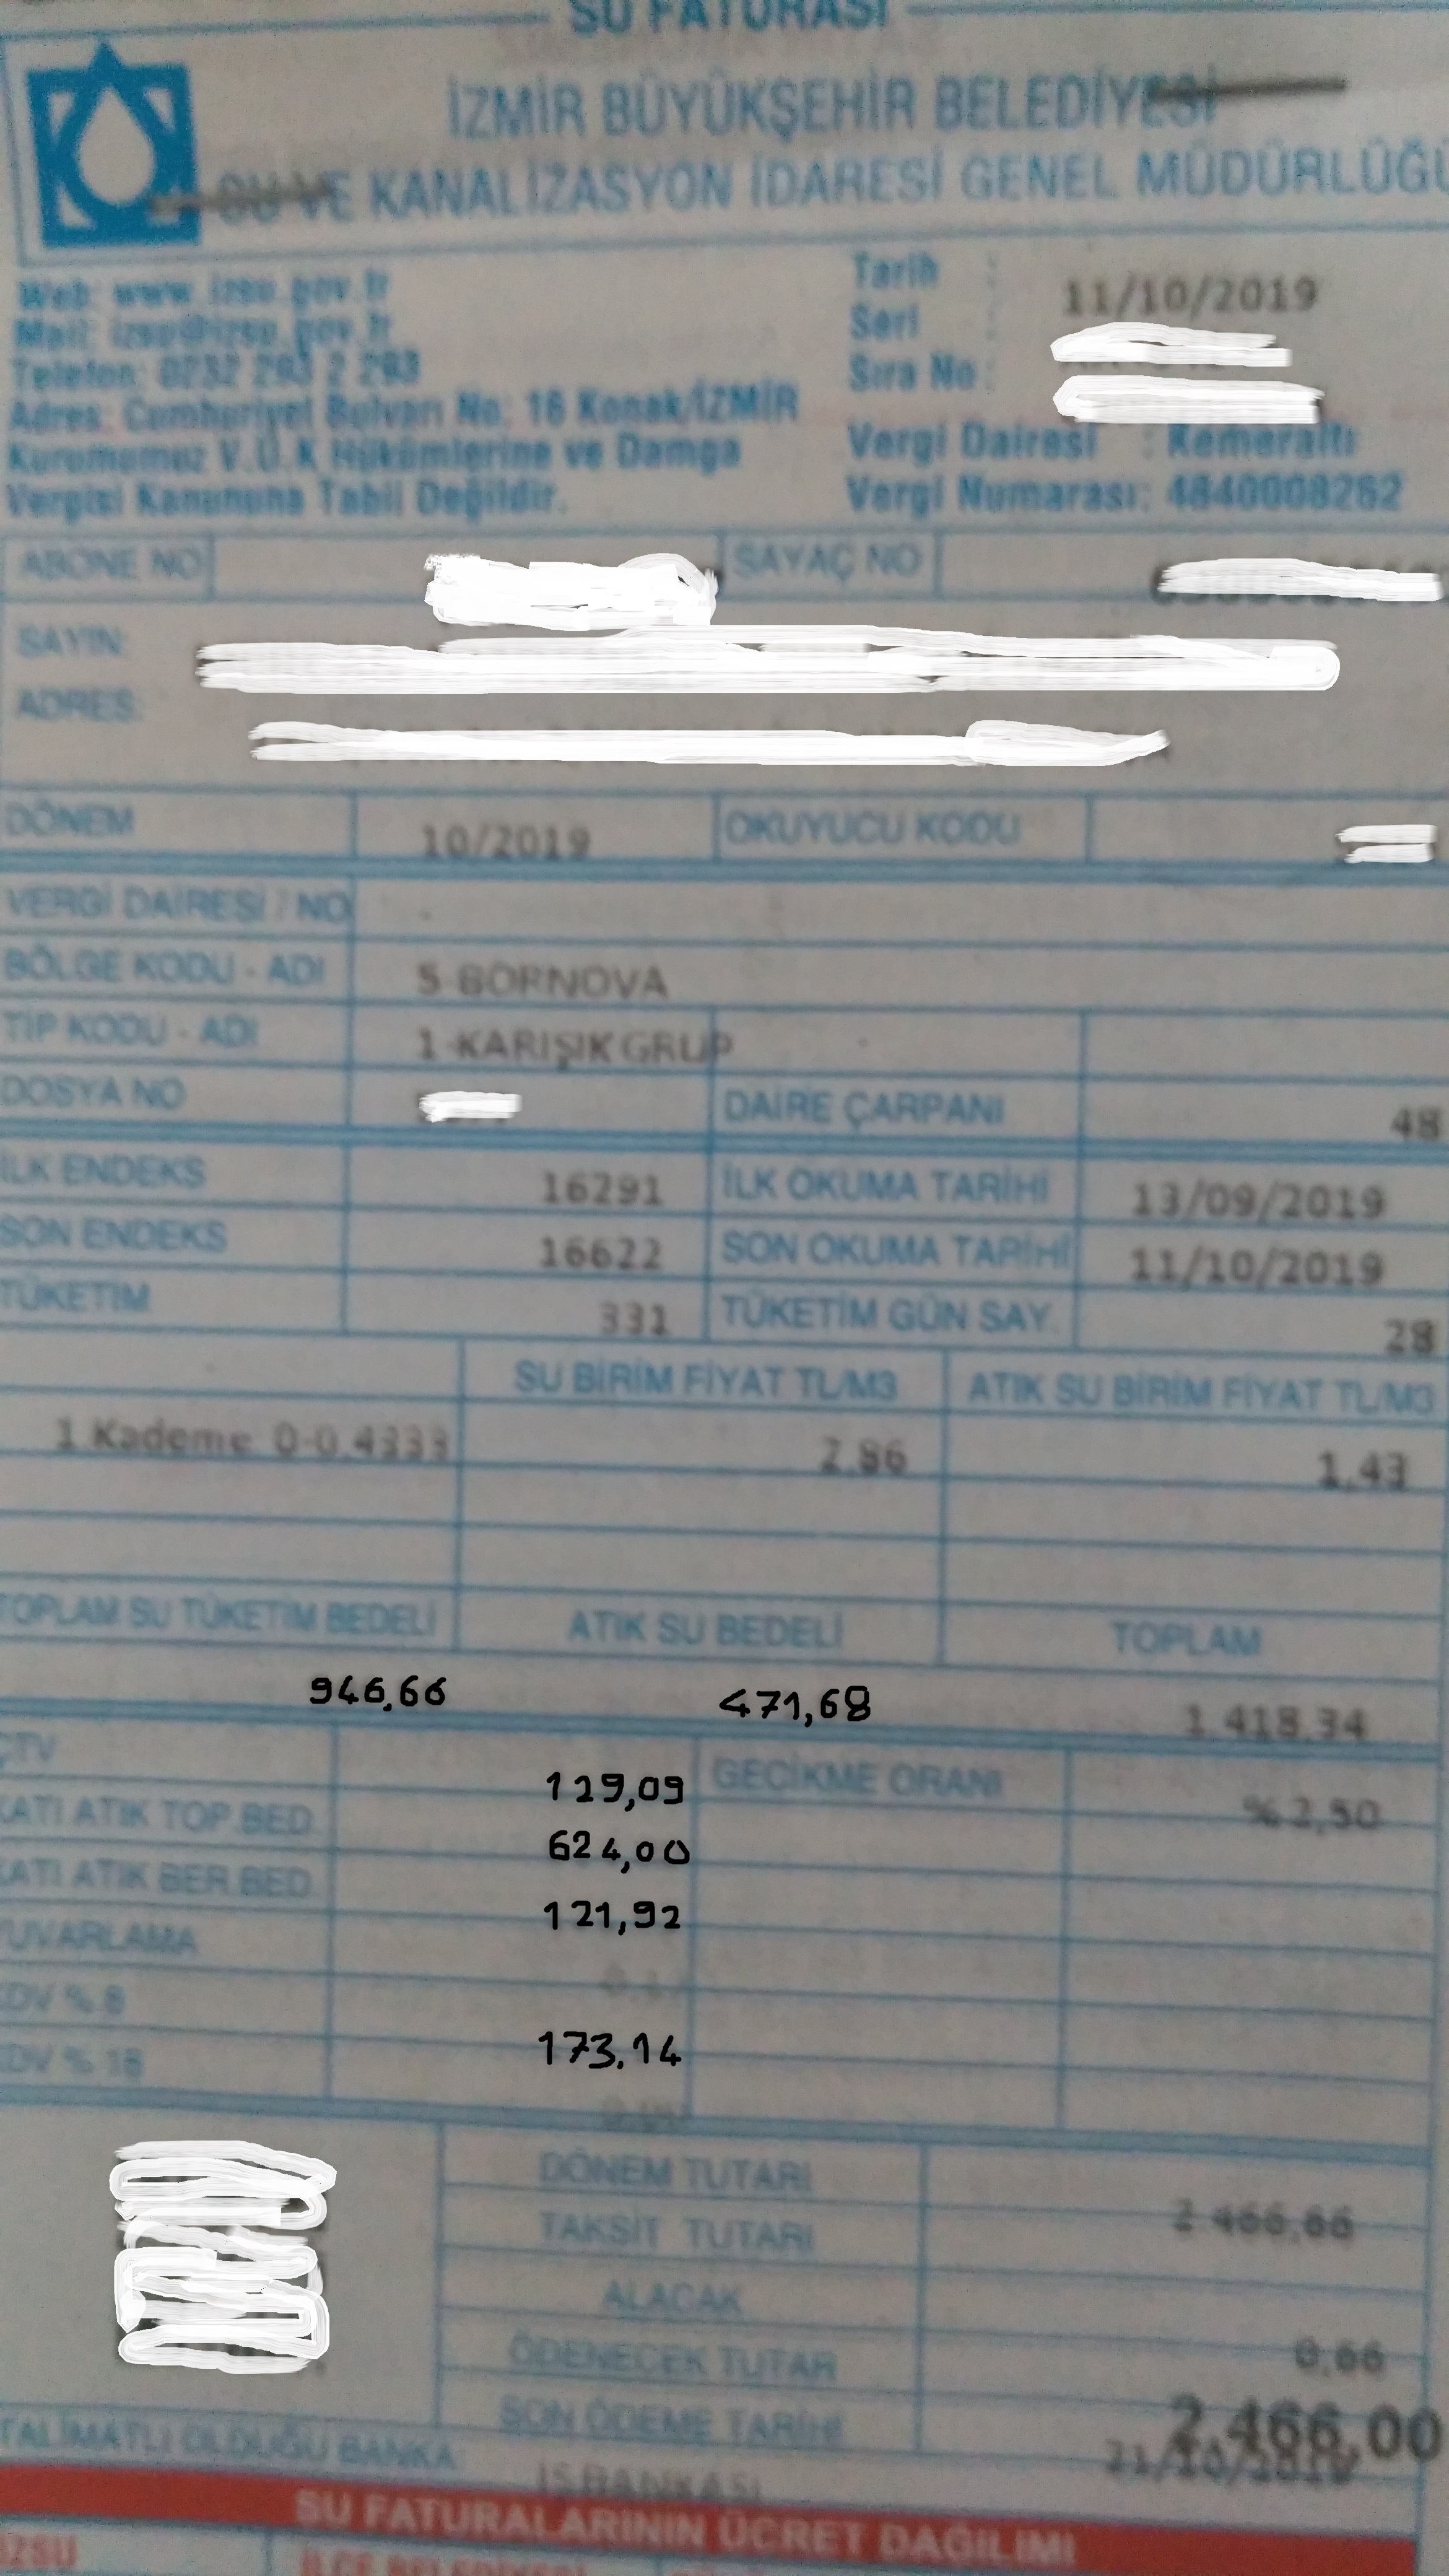 SU FATURASI
İZMİR BÜYÜKŞEHİR BELEDİYESİ
SU VE KANALİZASYON İDARESİ GENEL MÜDÜRLÜĞÜ
Web: www.izsu.gov.tr
Mail: izsu@izsu.gov.tr
Telefon: 0232 293 2 293
Adres: Cumhuriyet Bulvarı No: 16 Konak/İZMİR
Kurumumuz V.U.K Hükümlerine ve Damga
Vergisi Kanununa Tabii Değildir.
Tarih : 11/10/2019
Seri :
Sıra No :
Vergi Dairesi : Kemeraltı
Vergi Numarası: 4840008262
ABONE NO SAYAÇ NO
SAYIN:
ADRES:
DÖNEM 10/2019 OKUYUCU KODU
VERGİ DAİRESİ / NO
BÖLGE KODU - ADI 5-BORNOVA
TİP KODU - ADI 1-KARIŞIK GRUP
DOSYA NO DAİRE ÇARPANI 48
İLK ENDEKS 16291 İLK OKUMA TARİHİ 13/09/2019
SON ENDEKS 16622 SON OKUMA TARİHİ 11/10/2019
TÜKETİM 331 TÜKETİM GÜN SAY. 28
SU BİRİM FİYAT TL/M3 ATIK SU BİRİM FİYAT TL/M3
1 Kademe 0-0.4333 2.86 1.43
TOPLAM SU TÜKETİM BEDELİ ATIK SU BEDELİ TOPLAM
946,66 471,68 1.418,34
ÇTV 129,09 GECİKME ORANI %2,50
KATI ATIK TOP.BED. 624,00
KATI ATIK BER.BED. 121,92
YUVARLAMA
KDV % 8 173,14
KDV % 18
DÖNEM TUTARI 2.466,66
TAKSİT TUTARI
ALACAK 0,66
ÖDENECEK TUTAR 2.466,00
SON ÖDEME TARİHİ 21/10/2019
TALİMATLI OLDUĞU BANKA: İŞ BANKASI
SU FATURALARININ ÜCRET DAĞILIMI
İZSU İLÇE BELEDİYESİ